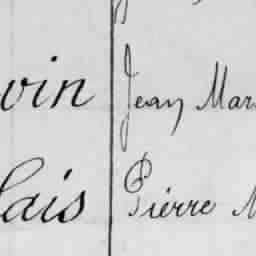 vin Jean Mar
lais Pierre M